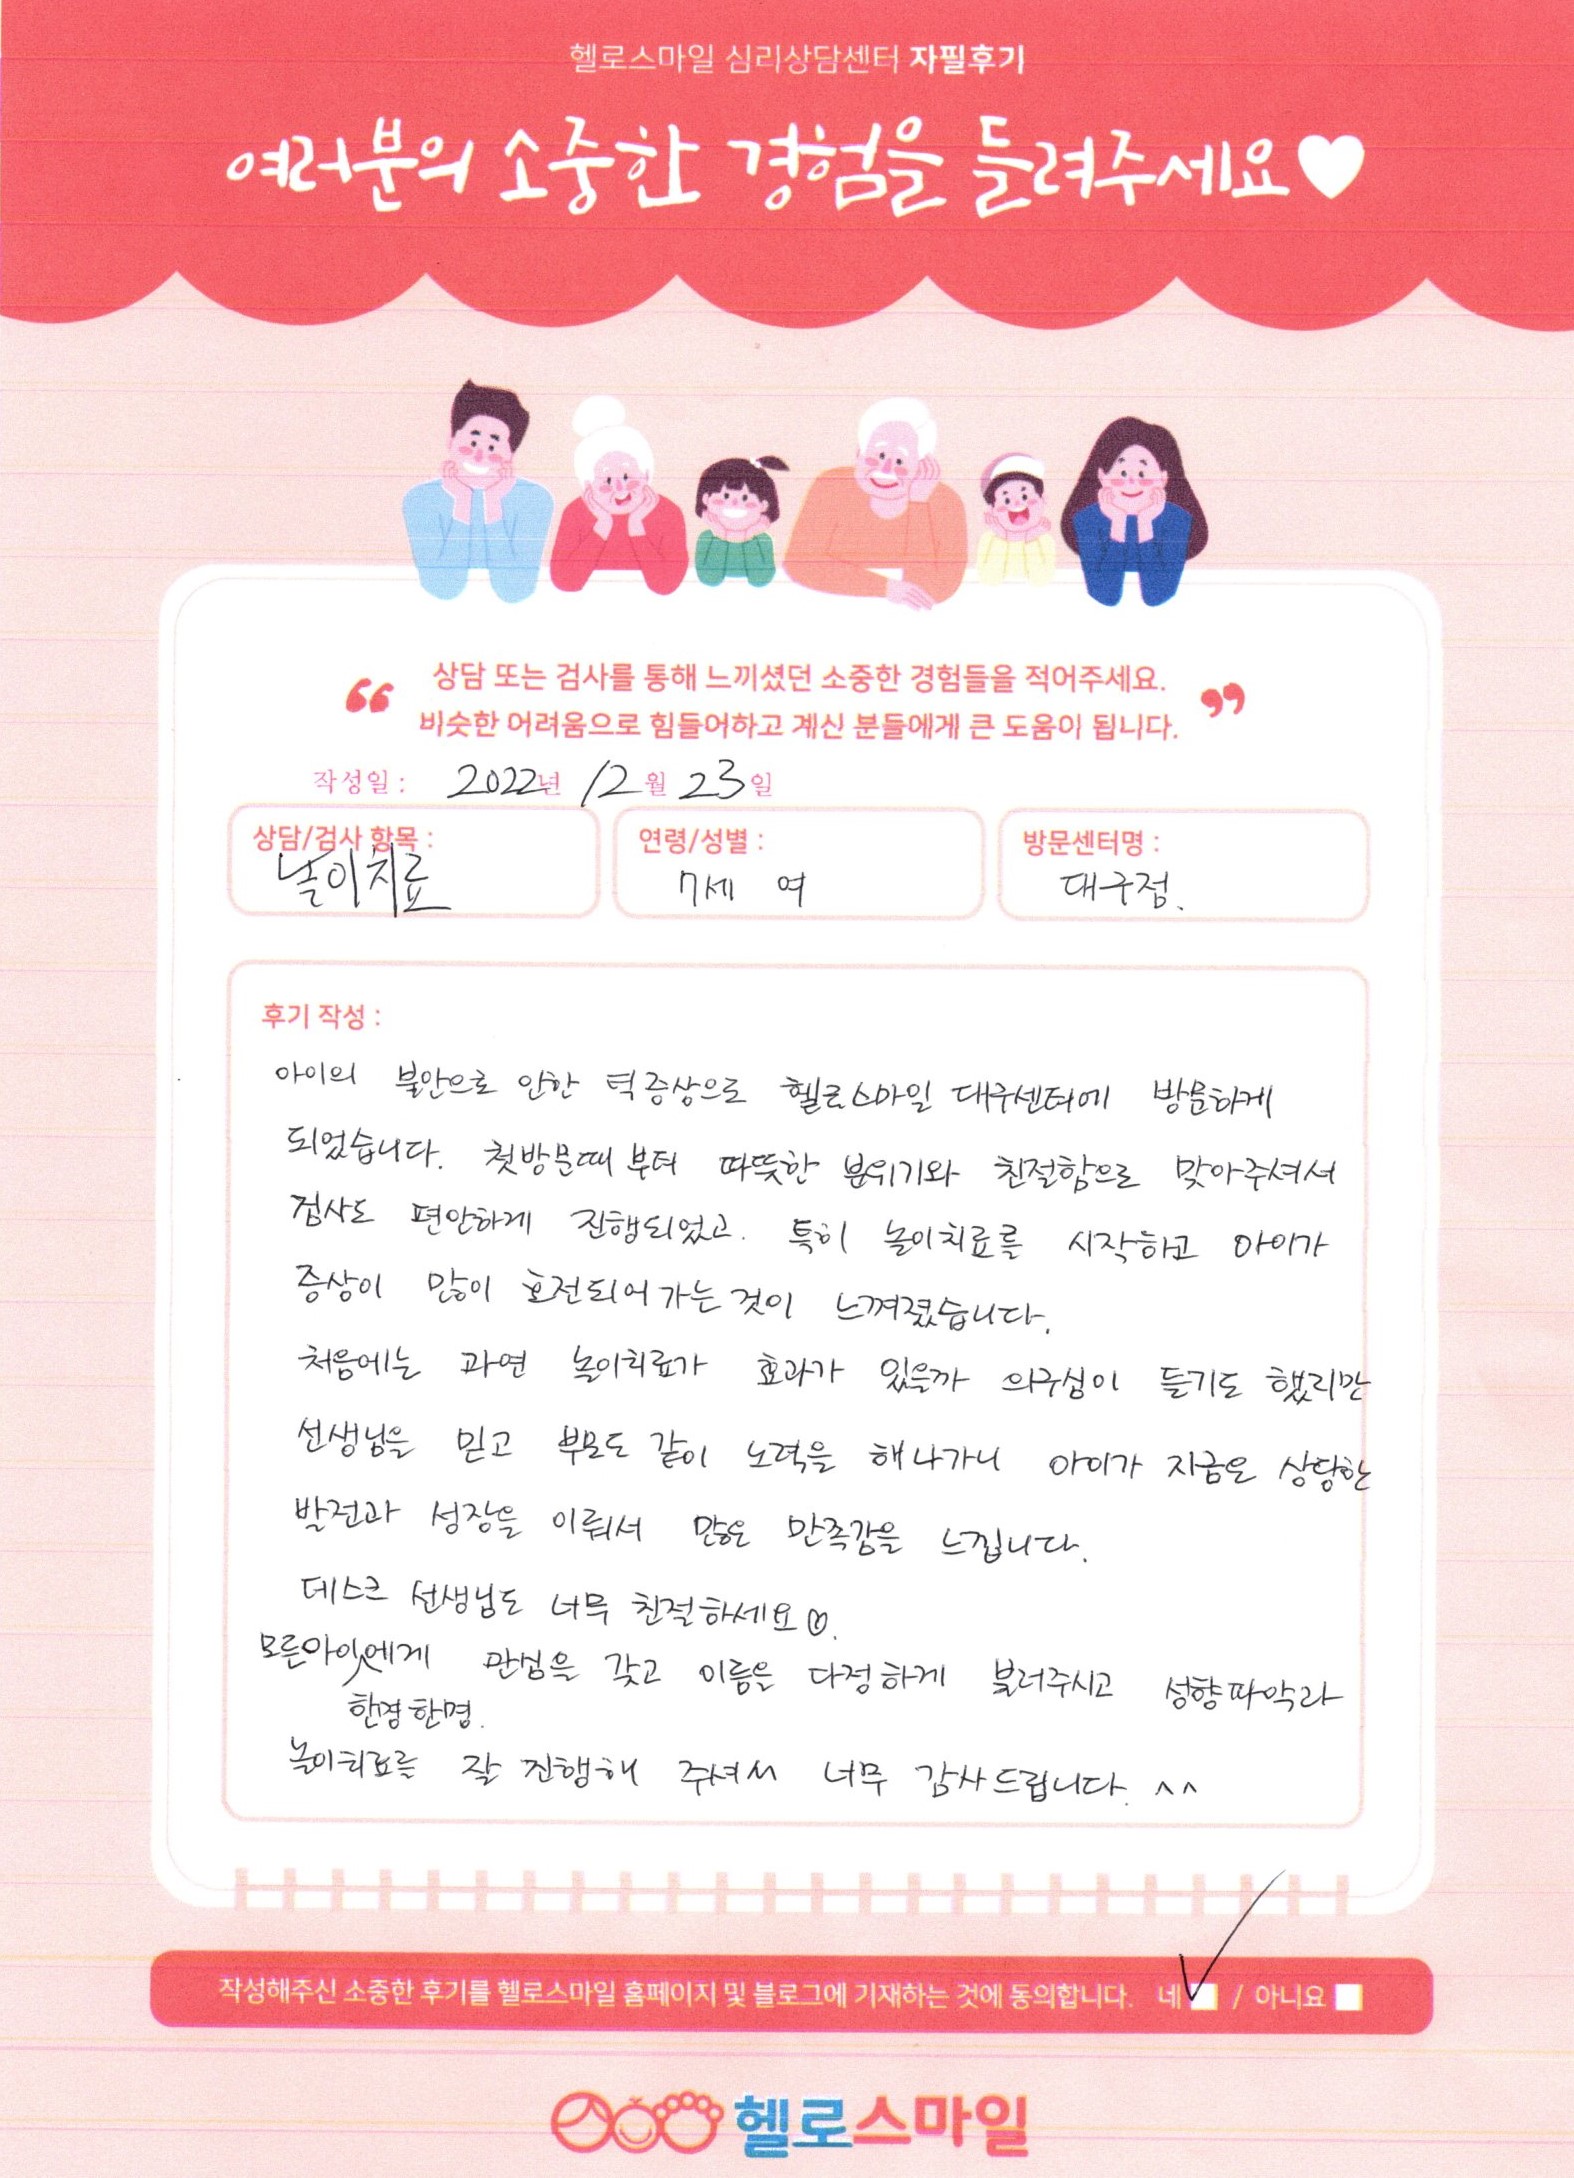 헬로스마일 심리상담센터 자필후기
여러분의 소중한 경험을 들려주세요♥
“ 상담 또는 검사를 통해 느끼셨던 소중한 경험들을 적어주세요. ”
비슷한 어려움으로 힘들어하고 계신 분들에게 큰 도움이 됩니다.
작성일 : 2022년 12월 23일
상담/검사 항목 :
놀이치료
연령/성별 :
7세 여
방문센터명 :
대구점.
후기 작성 :
아이의 불안으로 인한 턱증상으로 헬로스마일 대구센터에 방문하게
되었습니다. 첫방문때 부터 따뜻한 분위기와 친절함으로 맞아주셔서
검사도 편안하게 진행되었고. 특히 놀이치료를 시작하고 아이가
증상이 많이 호전되어가는 것이 느껴졌습니다.
처음에는 과연 놀이치료가 효과가 있을까 의구심이 들기도 했지만
선생님을 믿고 부모도 같이 노력을 해나가니 아이가 지금은 상당한
발전과 성장을 이뤄서 많은 만족감을 느낍니다.
데스크 선생님도 너무 친절하세요♡.
모든아이에게 관심을 갖고 이름을 다정하게 불러주시고 성향파악과
한명한명.
놀이치료를 잘 진행해 주셔서 너무 감사드립니다. ^^
작성해주신 소중한 후기를 헬로스마일 홈페이지 및 블로그에 기재하는 것에 동의합니다. 네 / 아니요
헬로스마일